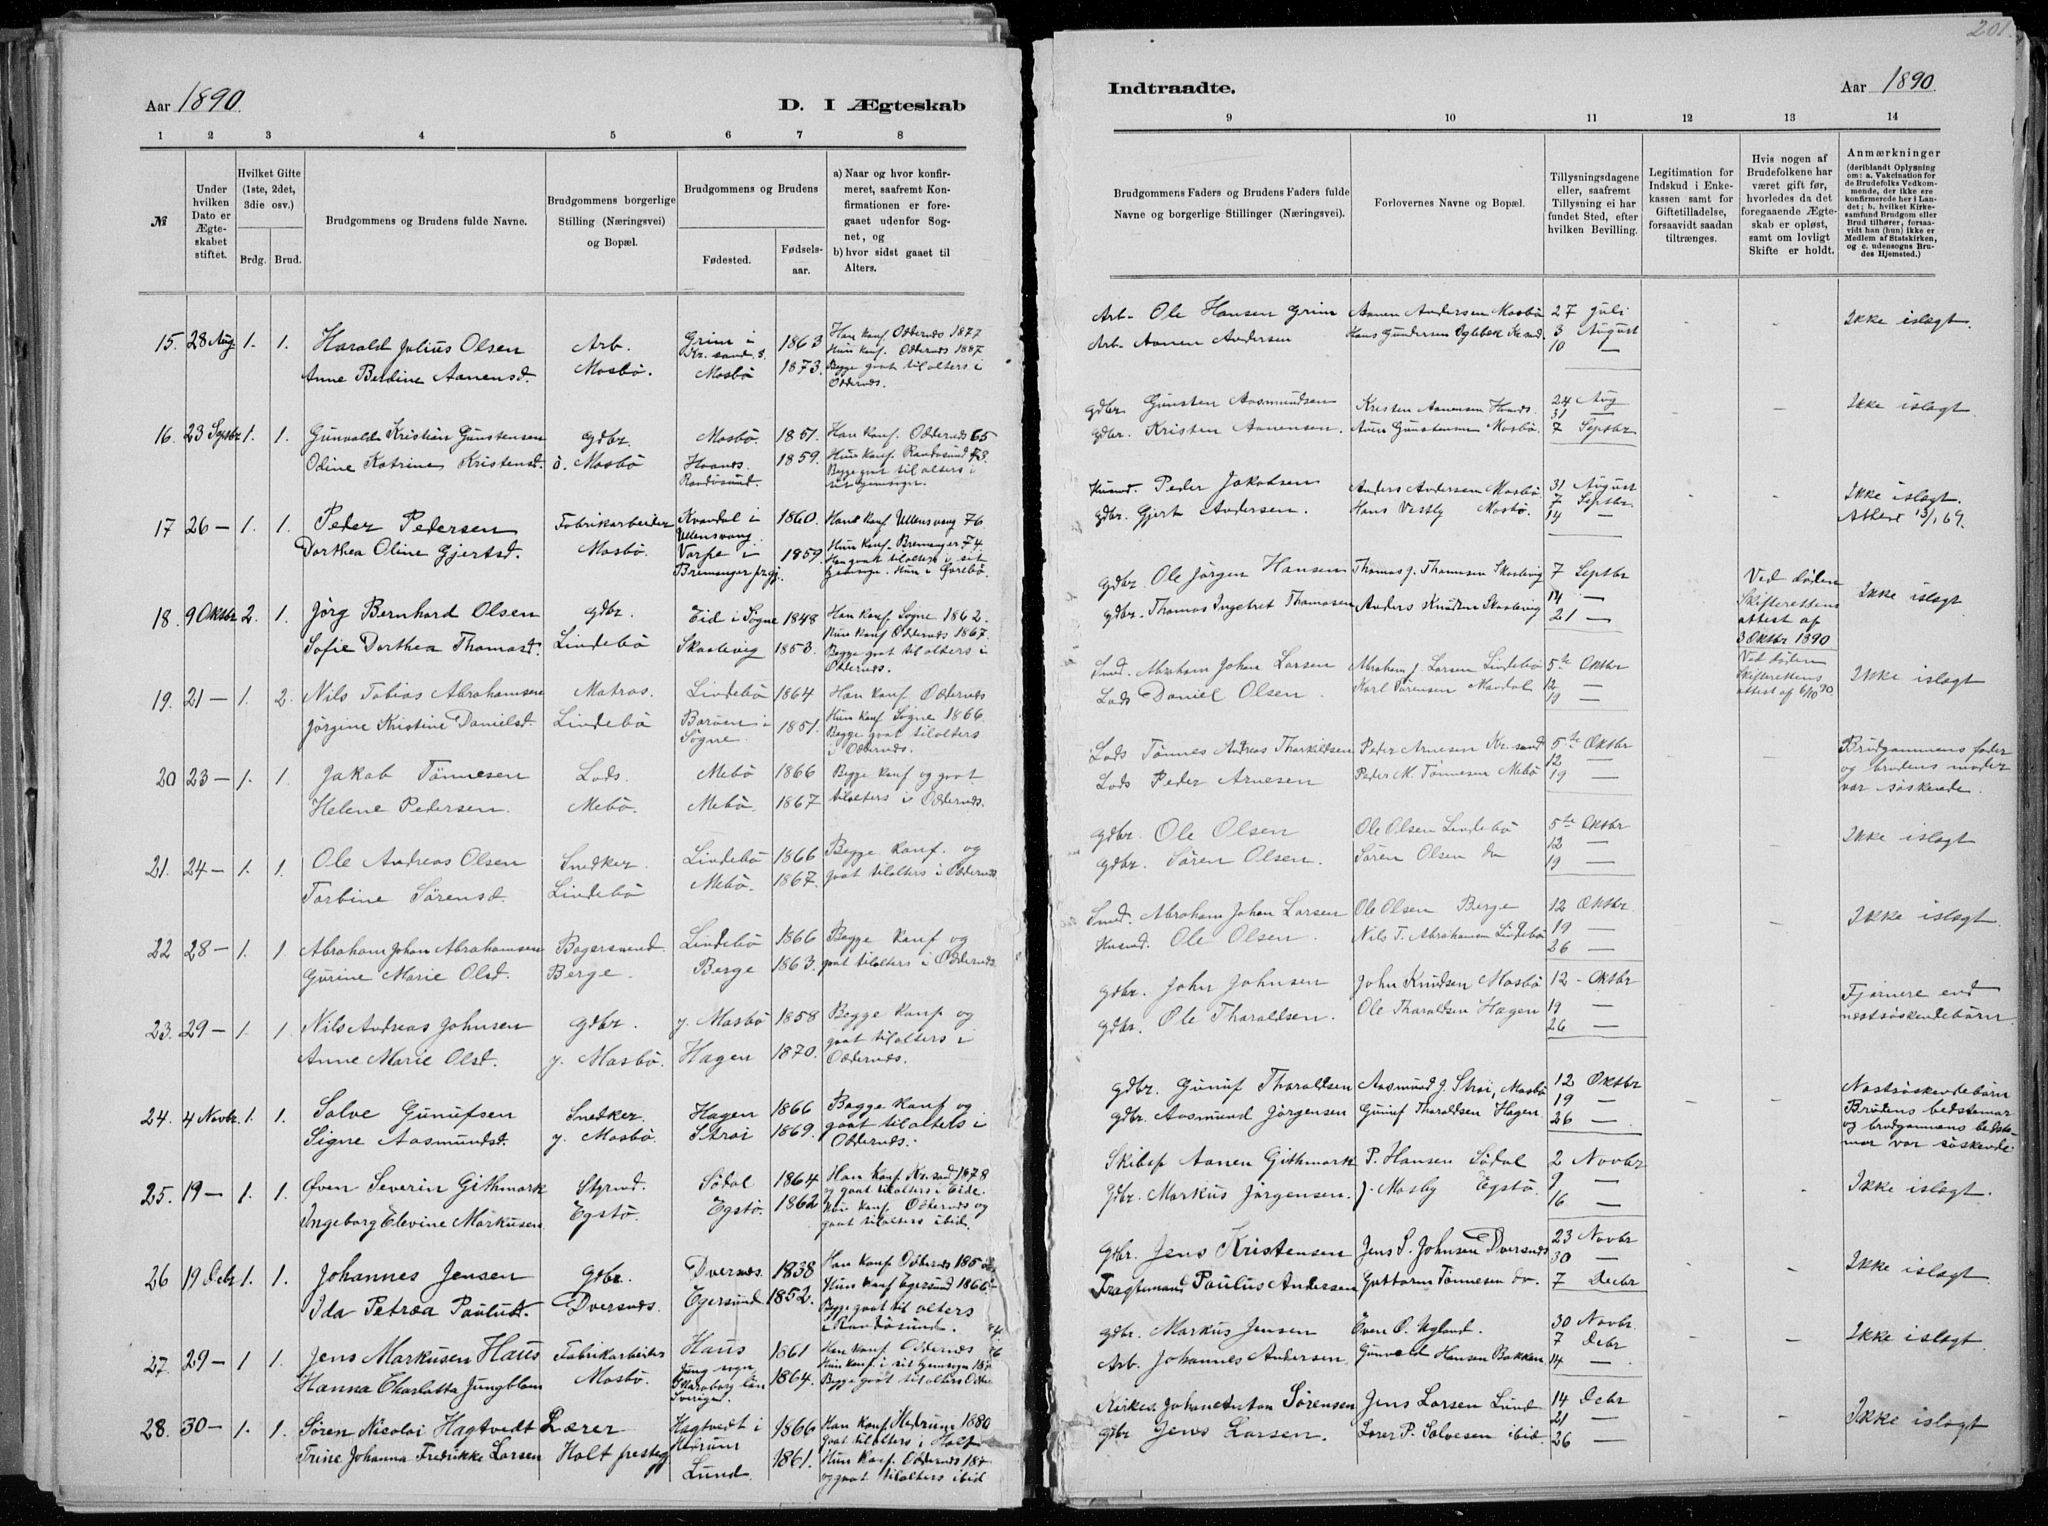 201.
Aar 1890.
D. I Ægteskab
1 2 3 4 5 6 7 8
№
Under hvilken Dato er Ægteskabet stiftet.
Hvilket Gifte (1ste, 2det, 3die osv.)
Brdg. Brud.
Brudgommens og Brudens fulde Navne.
Brudgommens borgerlige Stilling (Næringsvei) og Bopæl.
Brudgommens og Brudens
Fødested.
Fødselsaar.
a) Naar og hvor konfirmeret, saafremt Konfirmationen er foregaaet udenfor Sognet, og
b) hvor sidst gaaet til Alters.
15. 28 Aug 1. 1. Harald Julius Olsen Arb. Grim i Kr.sand s. 1863 Han konf. Oddernes 1877
Anne Berdine Aanensd. Mosbö. Mosbö 1873. Hun konf. Oddernes 1887
Begge gaat til alters i Oddernes.
16. 23 Septbr 1. 1. Gunvald Kristian Gunstensen gdbr. Mosbö. 1851. Han konf. Oddernes 65
Odine Katrine Kristensd. ö. Mosbö Haanes Randösund. 1859. Hun konf. Randösund 73.
Begge gaat til alters i sit hjemsogn.
17 26 — 1. 1. Peder Pedersen Fabrikarbeider Kvandal i Ullensvang. 1860. Han konf Ullensvang 76.
Dorthea Oline Gjertsd. Mosbö. Varpe i Bremanger prgj. 1859. Hun konf. Bremanger 74
Han gaat til alters i sit hjemsogn. Hun i
18. 9 Oktbr 2. 1. Jörg Bernhard Olsen gdbr. Eid i Sogne 1848 Han konf Sogne 1862.
Sofie Dorthea Thomasd. Lindebö Skaalevig 1853. Hun konf Oddernes 1867.
Begge gaat til alters i Oddernes.
19. 21 — 1. 2. Nils Tobias Abrahamsen Matros. Lindebö 1864 Han konf Oddernes
Jörgine Kristine Danielsd. Lindebö Boröen i Sögne. 1851. Hun konf Sogne 1866.
Begge gaat til alters i Oddernes.
20 23 — 1. 1. Jakob Tönnesen Lods. Mebö 1866 Begge konf og gaat
Helene Pedersen. Mebö. Mebö. 1867 til alters i Oddernes.
21. 24 — 1. 1. Ole Andreas Olsen Snedker. Lindebö 1866 Begge konf. og
Torbine Sörensd. Lindebö Mebö. 1867. gaat til alters i Oddernes
22 28 — 1. 1. Abraham Johan Abrahamsen Bagersvend Lindebö 1866 Begge konf og
Gurine Marie Olsd. Berge. Berge 1863. gaat til alters i Oddernes.
23. 29 — 1. 1. Nils Andreas Johnsen gdbr. y. Mosbö 1858 Begge konf og
Anne Marie Olsd. y. Mosbö. Hagen 1870. gaat til alters i Oddernes.
24. 4 Novbr. 1. 1. Salve Gunufsen Snedker. Hagen 1866 Begge konf og
Signe Aasmundsd. y. Mosbö. Strai 1869. gaat til alters i Oddernes.
25. 19 — 1. 1. Öven Severin Githmark Styrmd. Södal 1864 Han konf Kr.sand 1878
og gaat til alters i Eide.
Ingeborg Elevine Markusen Egstö. Egstö. 1862 Hun konf Oddernes og gaat til alters ibid.
26 19 Debr 1. 1. Johannes Jensen gdbr. Dvernes. 1838 Han konf Oddernes
Ida Petrea Paulusd. Dversnes. Egersund 1852. Hun konf Egersund 1866
Begge gaat til alters i Randösund.
27. 29 — 1 1. Jens Markusen Haus Fabrikarbeider Haus 1861 Han konf Oddernes
Hanna Charlotta Jungblom Mosbö. Ljung sogn Skaraborg län Sverige. 1864. Hun konf i sit hjemsogn
Begge gaat til alters
28. 30 — 1. 1. Sören Nicolai Hagtvedt Lærer Hagtvedt i Hedrum 1866 Han konf Hedrum 1880
gaat til alters i Holt
Trine Johanna Fredrikke Larsen Holt presteg Lund 1861. Hun konf. Oddernes
og gaat til alters ibid
Indtraadte.
Aar 1890.
9 10 11 12 13 14
Brudgommens Faders og Brudens Faders fulde Navne og borgerlige Stillinger (Næringsvei).
Forlovernes Navne og Bopæl.
Tillysningsdagene eller, saafremt Tillysning ei har fundet Sted, efter hvilken Bevilling.
Legitimation for Indskud i Enkekassen samt for Giftetilladelse, forsaavidt saadan tiltrænges.
Hvis nogen af Brudefolkene har været gift før, hvorledes da det foregaaende Ægteskab er opløst, samt om lovligt Skifte er holdt.
Anmærkninger (deriblandt Oplysning om: a. Vakcination for de Brudefolks Vedkommende, der ikke ere konfirmerede her i Landet; b. hvilket Kirkesamfund Brudgom eller Brud tilhører, forsaavidt han (hun) ikke er Medlem af Statskirken, og c. udensogns Brudes Hjemsted.)
Arb. Ole Hansen Grim Aanen Andersen Mosbö 27 Juli
Arb. Aanen Andersen Hans Gundersen Kr.sand. 3 August - - Ikke islægt.
10 —
gdbr. Gunsten Aasmundsen Kristen Aanensen Haanes 24 Aug
31 —
gdbr. Kristen Aanensen. Aven Gunstensen Mosbö. 7 Septbr - - Ikke islægt.
Husmd. Peder Jakobsen Anders Andersen Mosbö. 31 August
7 Septbr
gdbr. Gjert Andersen. Hans Vestby Mosbö. 14 — - - Ikke islægt. Attest 13/1 69.
gdbr. Ole Jörgen Hansen Thomas J. Thomsen Skaalevig 7 Septbr
14 —
gdbr. Thomas Ingebret Thomasen Anders Knudsen Skaalevig 21 — Ved döden Skifterettens attest af 3 Oktbr 1890 Ikke islægt
Smd. Abraham Johan Larsen Abraham J. Larsen Lindebö 5te Oktbr
12 —
Lods Daniel Olsen. Karl Sörensen Mandal 19 — Ved döden Skifterettens attest af 6/10 90. Ikke islægt
Lods Tönnes Andreas Tharkildsen Peder Arnesen Kr.sand 5te Oktbr
12 —
Lods Peder Arnesen Peder M. Tönnesen Mebö. 19 — Brudgommens fader og brudens moder var söskende.
gdbr. Ole Olsen Ole Olsen Lindebö 5te Oktbr
12 —
gdbr. Sören Olsen. Sören Olsen do 19 — Ikke islægt
Smd. Abraham Johan Larsen Ole Olsen Berge 12 Oktbr.
19 —
Husmd. Ole Olsen. Nils T. Abrahamsen Lindebö 26 — Ikke islægt.
gdbr. John Johnsen John Knudsen Mosbö 12 - Oktbr
19 —
gdbr. Ole Tharaldsen. Ole Tharaldsen Hagen 26 — Fjernere end næstsöskendebörn.
gdbr. Gunuf Tharaldsen Aasmund J. Strai, Mosbö 12 Oktbr
19 —
gdbr. Aasmund Jörgensen Gunuf Tharaldsen Hagen. 26 — Næstsöskendebörn Brudens bedstemor og brudgommens bedstemor var söskende.
Skibsp Aanen Githmark P. Hansen Södal 2 Novbr
9 —
Gdbr. Markus Jörgensen. J. Mosby Egstö. 16 — Ikke islægt.
gdbr. Jens Kristensen Jens S. Johnsen Dversnes 23 Novbr
30 —
Fragtemand Paulus Andersen Guttorm Tönnesen do. 7 Decbr Ikke islægt
gdbr. Markus Jensen Even O. Uglund. 30 Novbr.
7 Debr
Arb. Johannes Andersen Gunvald Hansen Bakken 14 — Ikke islægt
Kirkes. Johan Anton Sörensen Jens Larsen Lund 14 Debr
21 —
gdbr Jens Larsen. Lærer P. Salvesen ibid. 26 — Ikke islægt